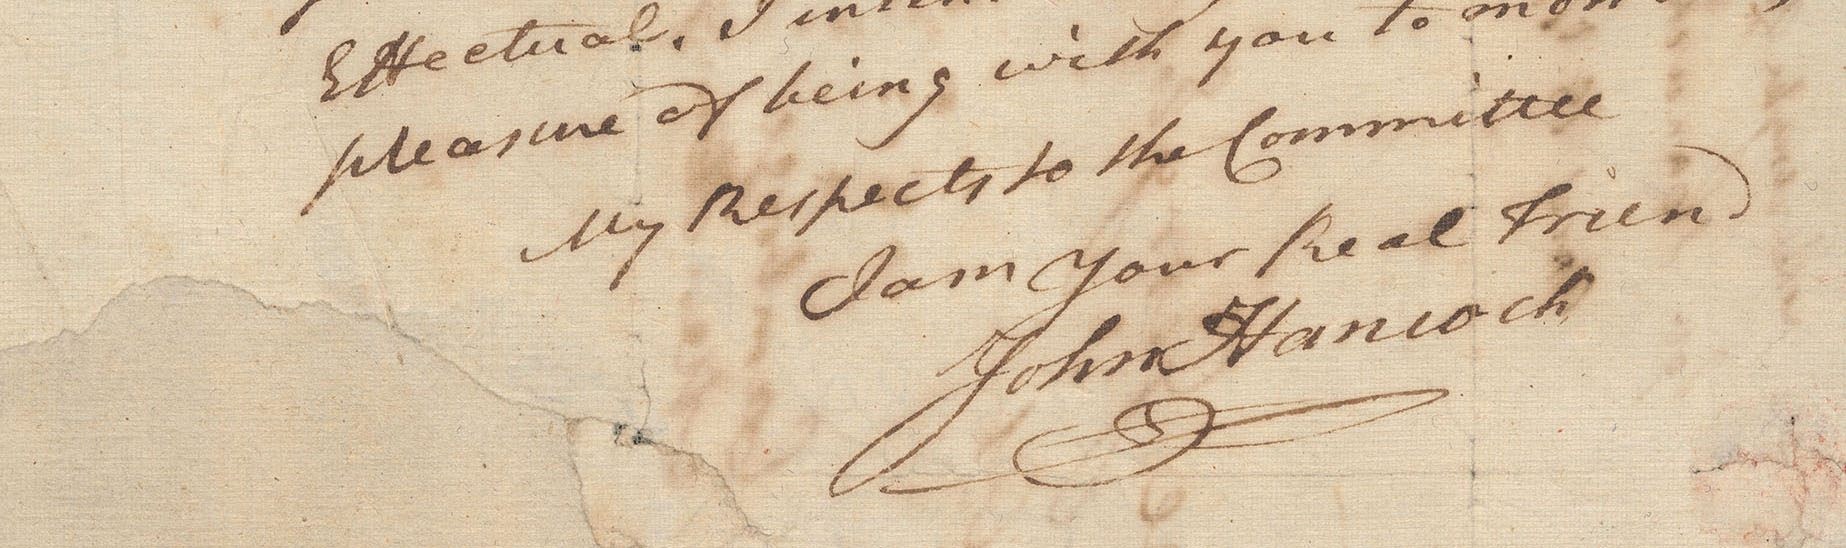 Effectual. I
pleasure of being with you to
My Respects to the Committee
I am Your Real Friend
John Hancock